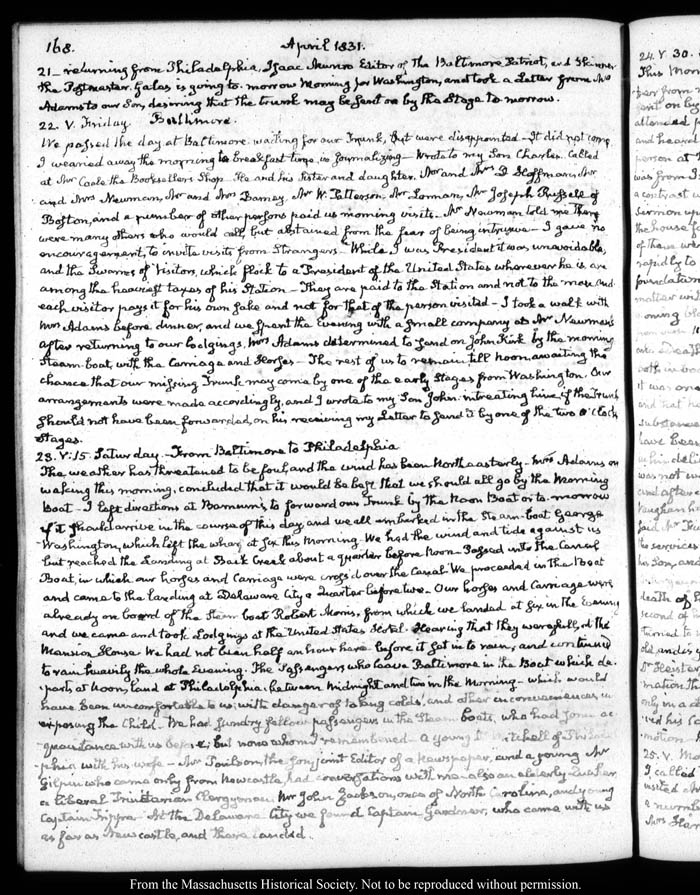 168. April 1831.
21_ returning from Philadelphia, Isaac Munro Editor of the Baltimore Patriot, and Skinner
the Postmaster. Galas is going to-morrow Morning for Washington, and took a Letter from Mrs
Adams to our Son, desiring that the trunk may be sent on by the Stage to morrow.
22. V. Friday. Baltimore.
We passed the day at Baltimore waiting for our Trunk, but were disappointed_It did not come
I wearied away the morning to breakfast time, in journalizing_ Wrote to my Son Charles. Called
at Mr Coale the Booksellers Shop. He and his Sister and daughter. Mr and Mrs D Hoffman, Mr
and Mrs Newman, Mr and Mrs Barney, Mr W. Patterson, Mr Loman, Mr Joseph Russell of
Boston, and a number of other persons paid us morning visits. Mr Newman told me there
were many others who would call, but abstained from the fear of being intrusive_ I gave no
encouragement, to invite visits from Strangers_ While I was President it was unavoidable,
and the Swarms of Visitors, which flock to a President of the United States wherever he is are
among the heaviest taxes of his Station_ They are paid to the Station and not to the man and
each visitor pays it for his own sake and not for that of the person visited_ I took a walk with
Mrs Adams before dinner, and we spent the Evening with a small company at Mr Newman's
After returning to our lodgings, Mrs Adams determined to send on John Kirk by the morning
Steam-boat, with the Carriage and Horses_ The rest of us to remain till noon, awaiting the
chance that our missing Trunk may come by one of the early Stages from Washington. Our
arrangements were made accordingly, and I wrote to my Son John intreating him, if the Trunk
should not have been forwarded, on his receiving my Letter to send it by one of the two o'Clock
Stages.
23. V:15. Saturday_ From Baltimore to Philadelphia
The weather has threatened to be foul, and the wind has been Northeasterly_ Mrs Adams on
waking this morning, concluded that it would be best that we should all go by the Morning
Boat_ I left directions at Barnum's, to forward our Trunk by the Noon Boat or to-morrow
if it should arrive in the course of this day, and we all embarked in the Steam-boat George
Washington, which left the wharf at six this Morning_ We had the wind and tide against us
but reached the Landing at Back Creek about a quarter before Noon_ Passed into the Canal
Boat, in which our horses and Carriage were cross'd over the Canal_ We proceeded in the Boat
and came to the landing at Delaware City a Quarter before two_ Our horses and Carriage were
already on board of the Steam boat Robert Morris, from which we landed at six in the Evening
and we came and took Lodgings at the United States Hotel_ Hearing that they were full, at the
Mansion House_ We had not been half an hour here before it set in to rain, and continued
to rain heavily the whole Evening. The Passengers who leave Baltimore in the Boat which de-
parts at Noon, land at Philadelphia, between Midnight and two in the Morning_ which would
have been uncomfortable to us, with danger of taking colds, and other inconveniences, in
exposing the Child_ We had sundry fellow passengers in the Steam boats, who had some ac-
quaintance with us before; but none whom I remembered_ A young Mitchell of Philadel-
phia with his wife_ Mr Poulson, the son, joint Editor of a Newspaper, and a young Mr
Gilpin who came only from Newcastle, had conversations with me_ also an elderly Quaker
a liberal Trinitarian Clergyman Mr John Jackson, once of North Carolina, and young
Captain Trippe_ At the Delaware City we found Captain Gardner, who came with us
as far as Newcastle, and there landed.
24. V. 30.
This Mor
attended
and heard
person at
was from
a contrast
Sermon up
the house
of these were
rapidly to
foundation
matter
it was one
substance
have been
in his deli
was not
and after
Vaughan
said
the services
his Son, and
death of
second of
old, under
only in a
ved his
motion
25. V. Mo
I called
visited
a number
Mrs
From the Massachusetts Historical Society. Not to be reproduced without permission.